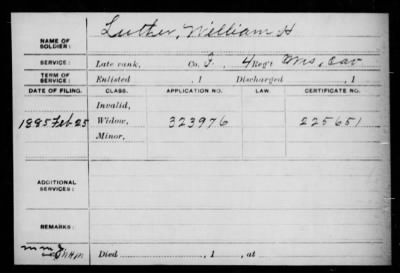 Luther, William H
NAME OF SOLDIER:
SERVICE: Late rank, Co. F. 4 Reg't Cav
TERM OF SERVICE: Enlisted , 1 Discharged , 1
DATE OF FILING. CLASS. APPLICATION NO. LAW. CERTIFICATE NO.
Invalid,
1885 Feb 25 Widow, 323976 225651
Minor,
ADDITIONAL SERVICES:
REMARKS:
Died , 1 , at